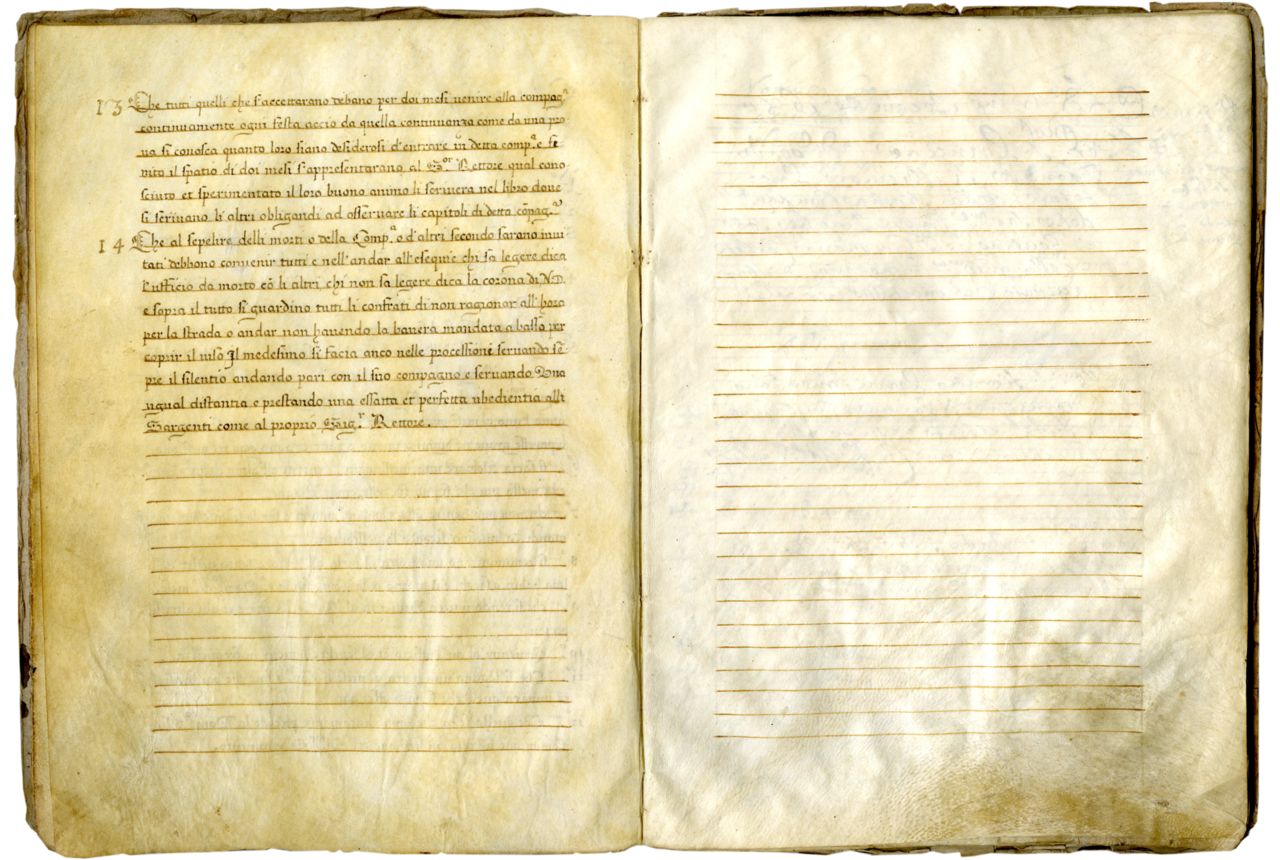 13 Che tutti quelli che s'accettarano debano per doi mesi venire alla compag.ª
continuamente ogni festa acciò da quella continuanza come da una pro
va si conosca quanto loro siano desiderosi d'entrare in detta comp.ª e fe
nito il spatio di doi mesi s'appresentarano al S.or Rettore qual cono
sciuto et sperimentato il loro buono animo li scrivera nel libro dove
si scrivano li altri obligandi ad osservare li capitoli di detta cōpag.ª
14 Che al sepelire delli morti o della Comp.ª o d'altri secondo sarano invi
tati debbono convenir tutti e nell'andar all'esequie chi sa legere dica
l'ufficio da morto cō li altri chi non sa legere dica la corona di N.D.
e sopra il tutto si guardino tutti li confrati di non ragionar all'hora
per la strada o andar non havendo la bavera mandata a basso per
coprir il viso Il medesimo si facia anco nelle processioni servando sē
pre il silentio andando pari con il suo compagno e servando Una
ugual distantia e prestando una essatta et perfetta ubedientia alli
Sargenti come al proprio Sig.r Rettore.